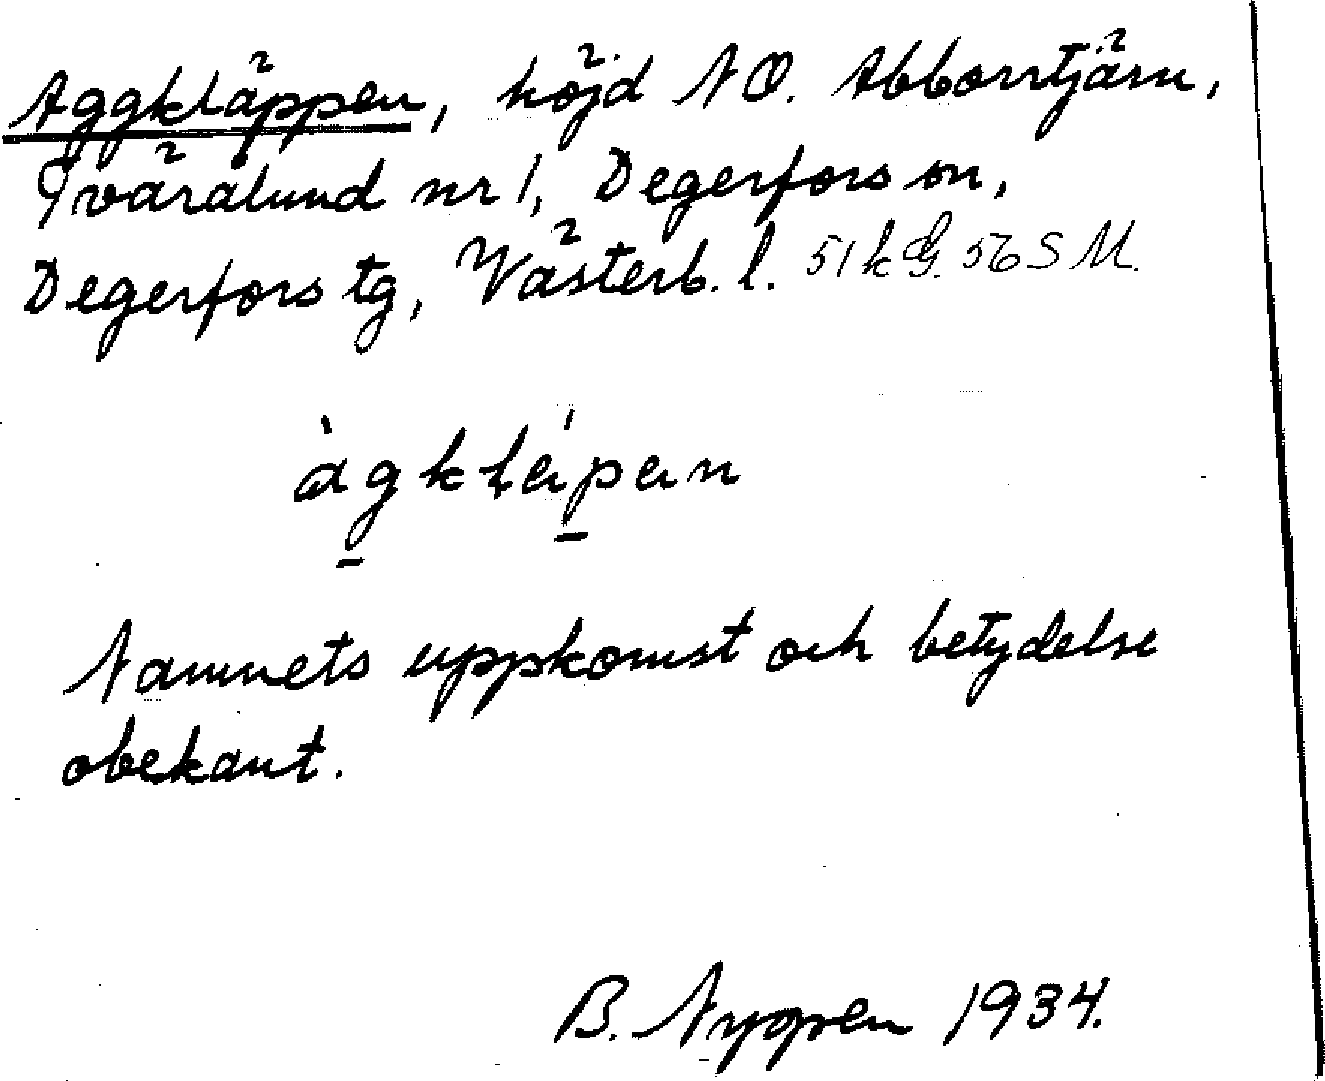 Aggkläppen, höjd NO. Abborrtjärn,
Tvärålund nr 1, Degerfors sn,
Degerfors tg, Västerb. l. 51 k G. 56 S M.
àgkłápan
Namnets uppkomst och betydelse
obekant.
B. Nygren 1934.